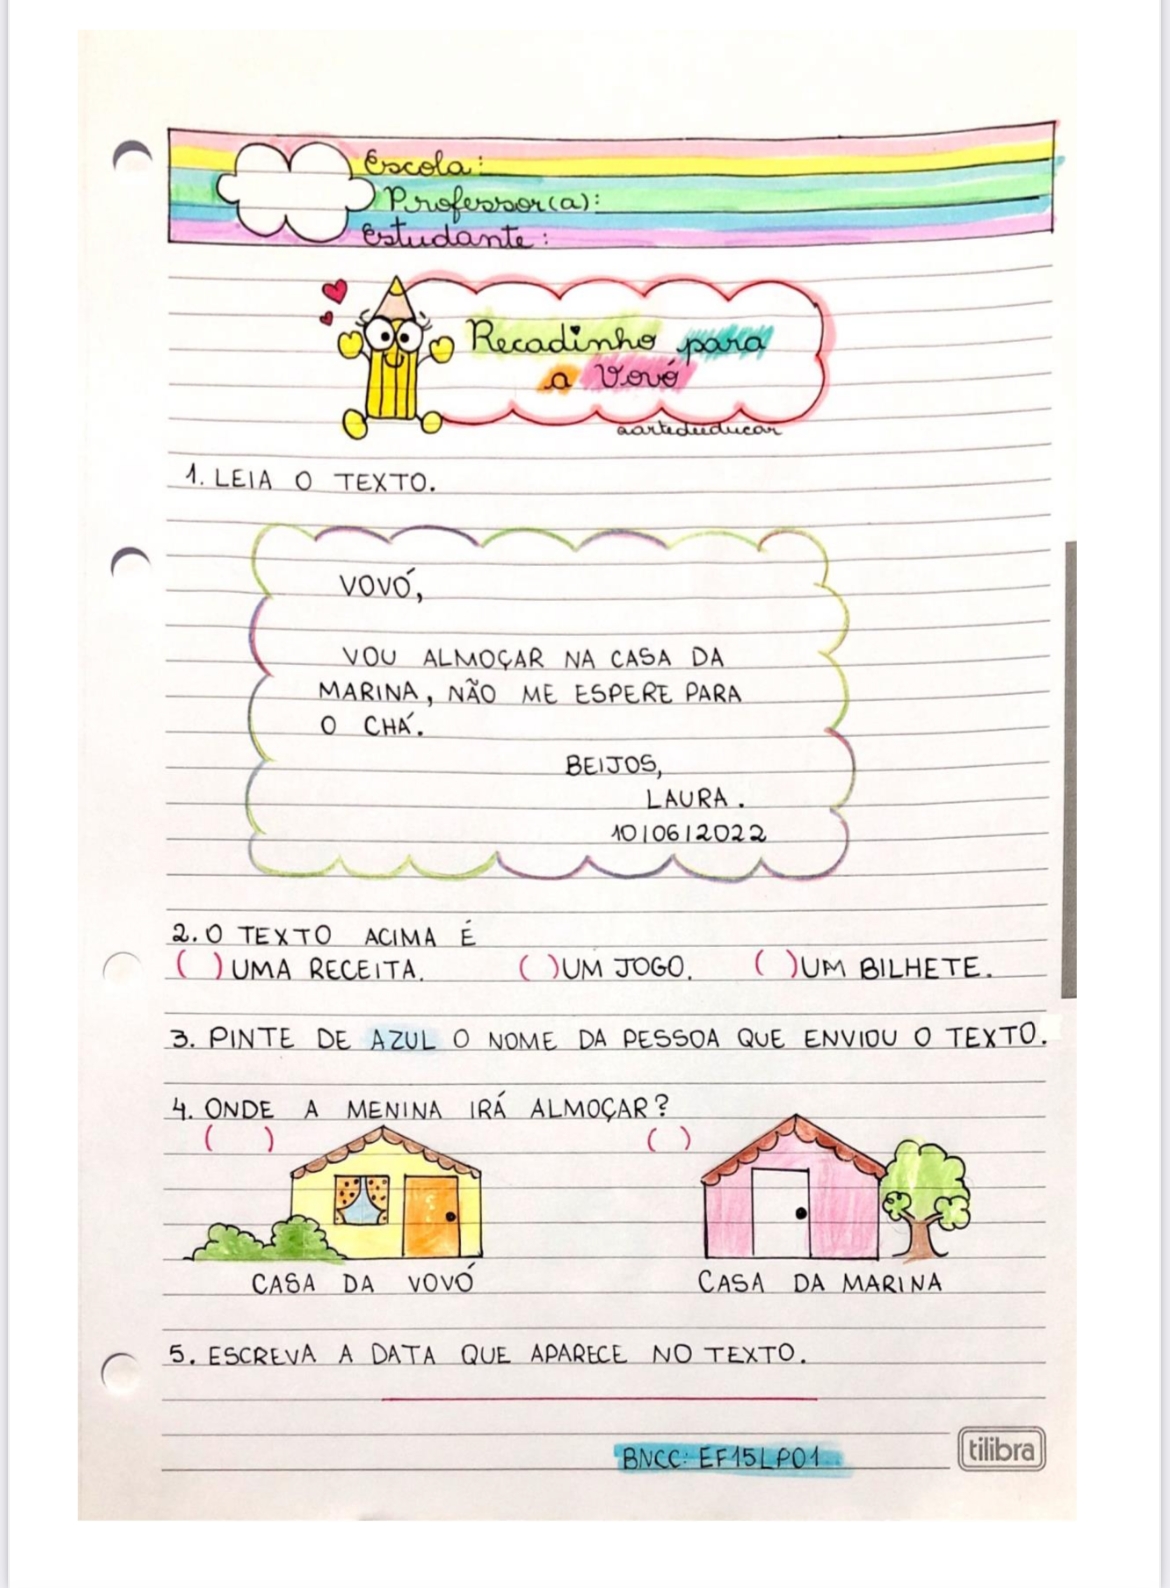 Escola:
Professor(a):
Estudante:
Recadinho para
a Vovó
aartedeeducar
1. LEIA O TEXTO.
VOVÓ,
VOU ALMOÇAR NA CASA DA
MARINA, NÃO ME ESPERE PARA
O CHÁ.
BEIJOS,
LAURA.
10/06/2022
2. O TEXTO ACIMA É
( ) UMA RECEITA. ( ) UM JOGO. ( ) UM BILHETE.
3. PINTE DE AZUL O NOME DA PESSOA QUE ENVIOU O TEXTO.
4. ONDE A MENINA IRÁ ALMOÇAR?
( ) ( )
CASA DA VOVÓ CASA DA MARINA
5. ESCREVA A DATA QUE APARECE NO TEXTO.
BNCC: EF15LP01
tilibra